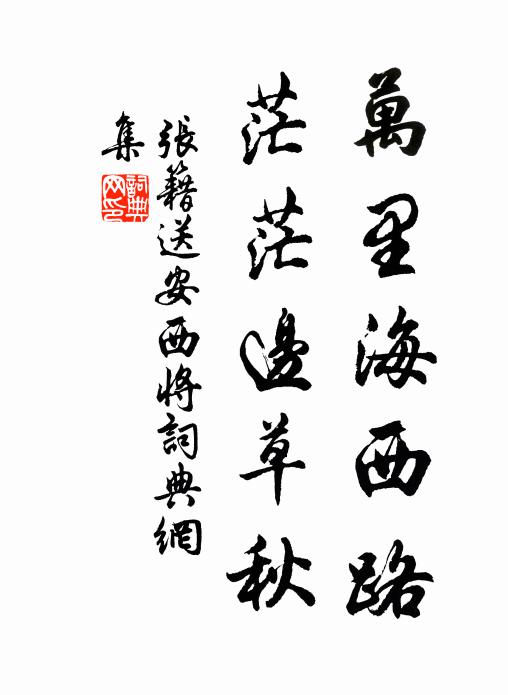 萬里海西路
茫茫邊草秋
張籍送安西將詞典網
集
詞典
网印